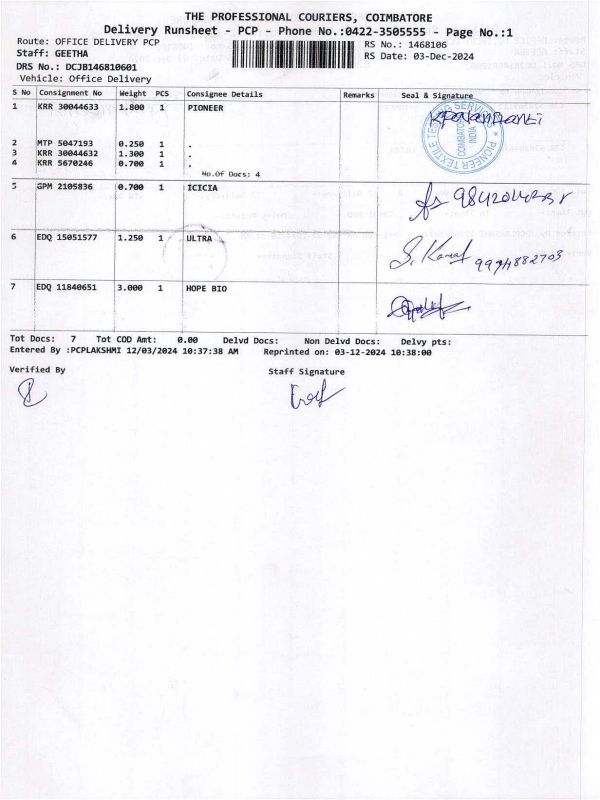 THE PROFESSIONAL COURIERS, COIMBATORE
Delivery Runsheet - PCP - Phone No.:0422-3505555 - Page No.:1
Route: OFFICE DELIVERY PCP RS No.: 1468106
Staff: GEETHA RS Date: 03-Dec-2024
DRS No.: DCJB146810601
Vehicle: Office Delivery
S No Consignment No Weight PCS Consignee Details Remarks Seal & Signature
1 KRR 30044633 1.800 1 PIONEER
PIONEER TEXTILE TESTING SERVICE
COIMBATORE
INDIA
2 MTP 5047193 0.250 1 .
3 KRR 30044632 1.300 1 .
4 KRR 5670246 0.700 1 .
No.Of Docs: 4
5 GPM 2105836 0.700 1 ICICIA
6 EDQ 15051577 1.250 1 ULTRA S. Kamal 9994882703
7 EDQ 11840651 3.000 1 HOPE BIO
Tot Docs: 7 Tot COD Amt: 0.00 Delvd Docs: Non Delvd Docs: Delvy pts:
Entered By :PCPLAKSHMI 12/03/2024 10:37:38 AM Reprinted on: 03-12-2024 10:38:00
Verified By Staff Signature